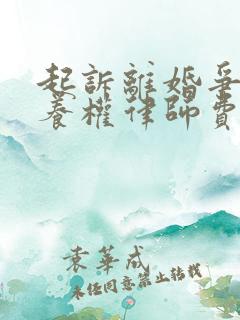 起訴離婚爭
養權律師費
袁華成
未經同意禁止轉載